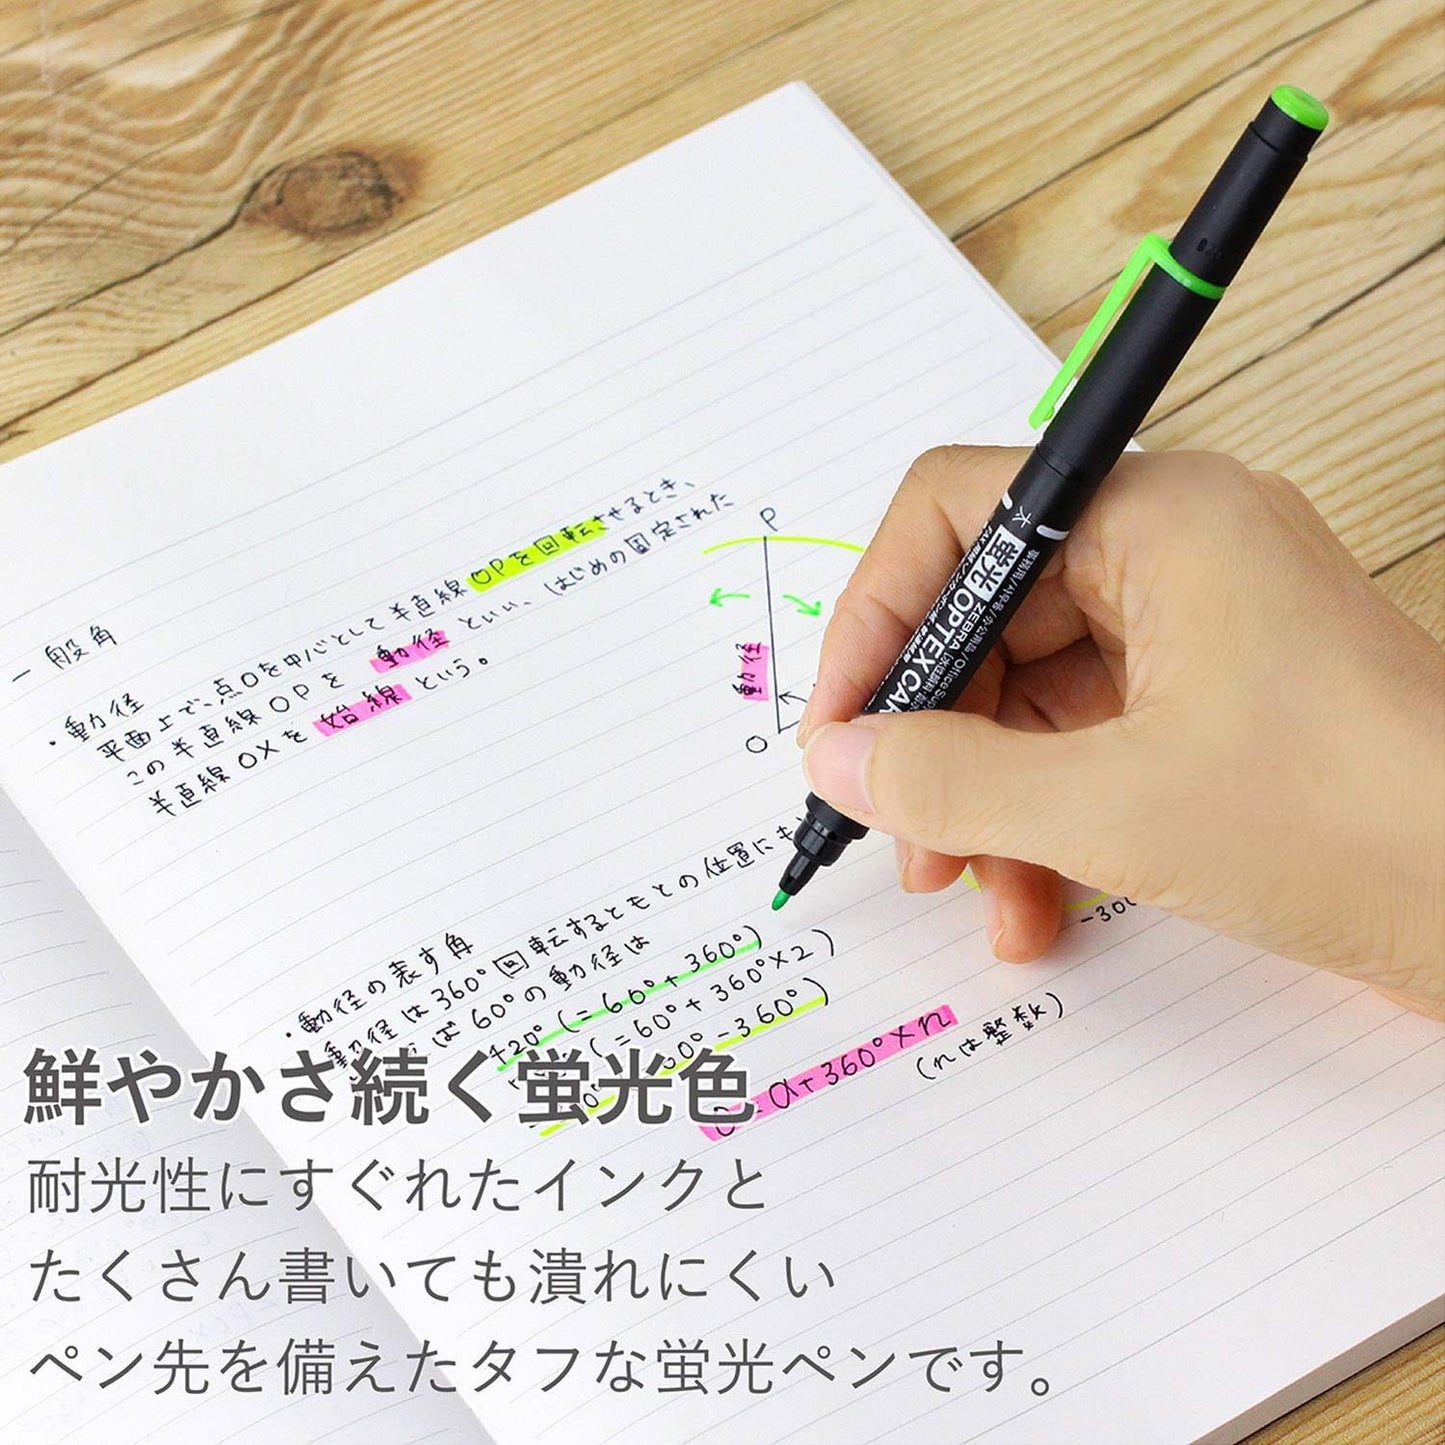 一般角
・動径
平面上で、点Oを中心として半直線OPを回転させるとき、
この半直線OPを 動径 といい、はじめの固定された
半直線OXを 始線 という。
P
動径
O
太
蛍光
ZEBRA
OPTEX CAR
事務用/사무용/办公用品/Office Sup
・動径の表す角
動径は360°回転するともとの位置にも
ば60°の動径は
420°(=60°+360°)
(=60°+360°×2)
60°-360°)
=α+360°×n
(nは整数)
-300
鮮やかさ続く蛍光色
耐光性にすぐれたインクと
たくさん書いても潰れにくい
ペン先を備えたタフな蛍光ペンです。